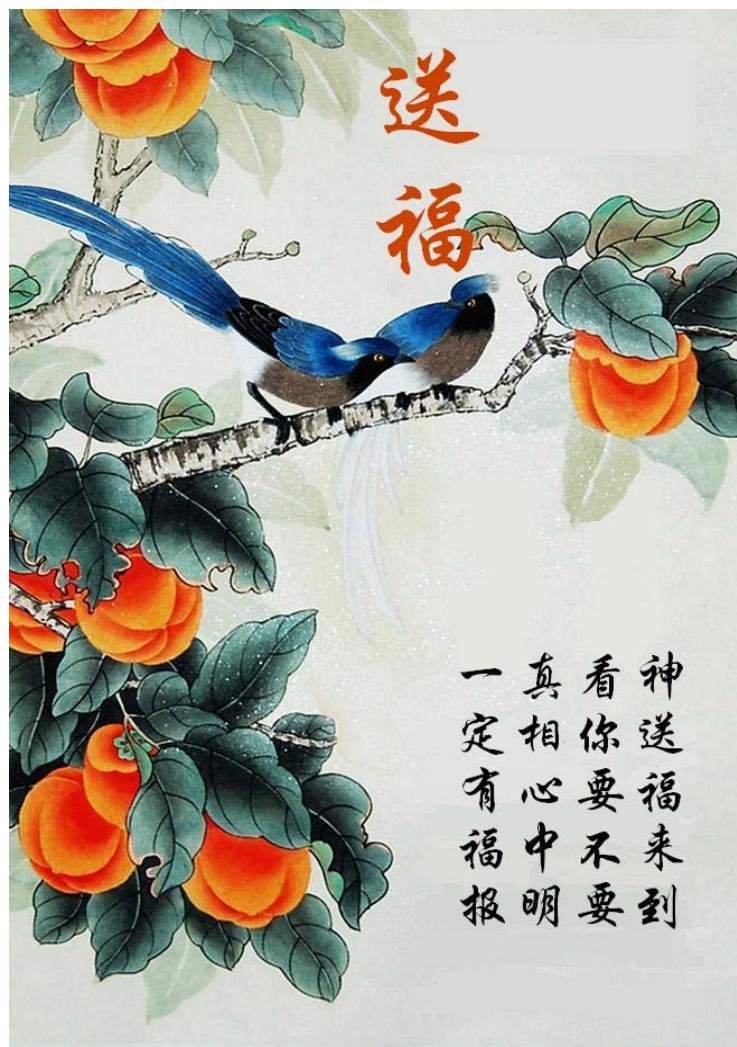 送福
神送福来到
看你要不要
真相心中明
一定有福报